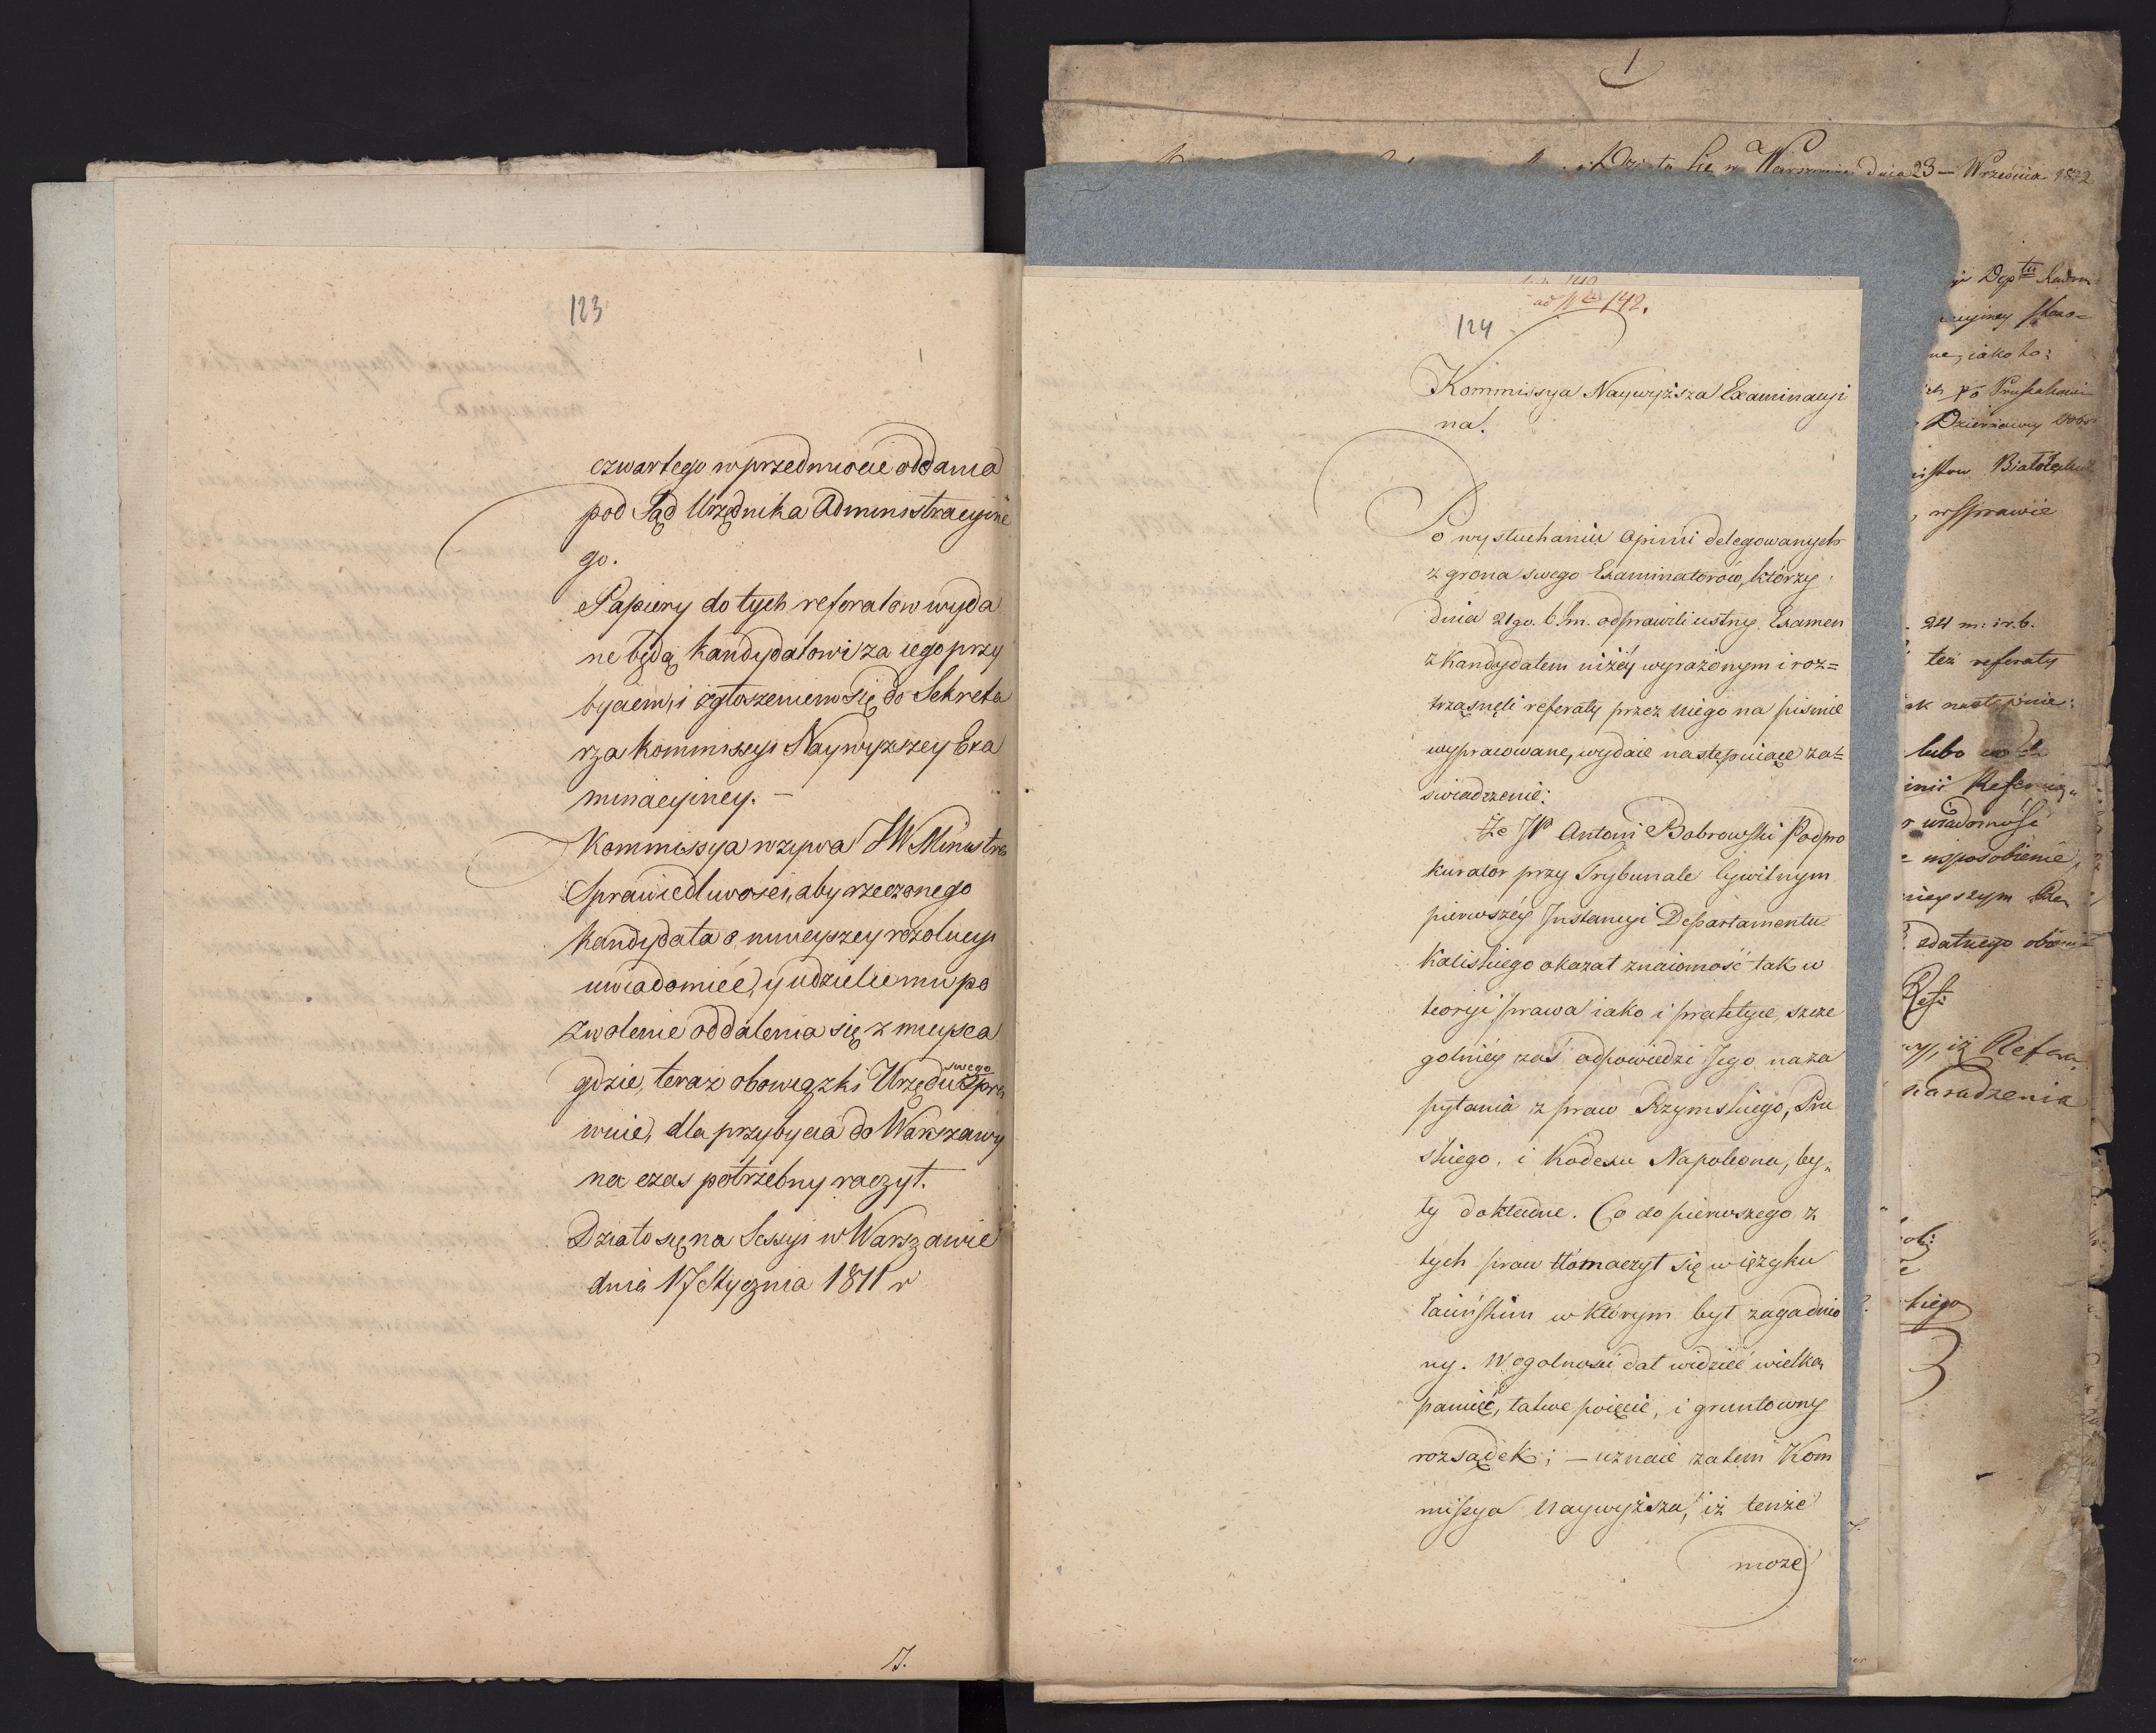 123
czwartego w przedmiocie oddania
pod Sąd Urzędnika Administracyine
go.
Papiery do tych referatow wyda
ne będą Kandydatowi za iego przy
byciem, i zgłoszeniem się do Sekreta
rza Kommissyi Naywyzszey Exa
minacyiney. –
Kommissya wzywa JW Ministra
Sprawiedliwości, aby rzeczonego
Kandydata o ninieyszey rezolucyi
uwiadomić, y udzielić mu po
zwolenie oddalenia się z mieysca
gdzie, teraz obowiązki Urzędu swego spra
wuie, dla przybycia do Warszawy
na czas potrzebny raczył.
Działo się na Sessyi w Warszawie
dnia 17 Stycznia 1811 r
ad Nrum 142.
124
Kommissya Naywyższa Examinacyi
na.
Po wysłuchaniu Opinii delegowanych
z grona swego Examinatorów, którzy
dnia 21go. b. m. odprawili ustny Examen
z Kandydatem niżéy wyrażonym i roz=
trząsnęli referaty przez niego na pismie
wypracowane, wydaie następuiące za=
swiadczenie:
Że JP Antoni Bobrowski Podpro
kurator przy Trybunale Cywilnym
pierwszéy Instancyi Departamentu
Kaliskiego okazał znaiomość tak w
teoryi prawa iako i praktyce, szcze
golniéy zaś odpowiedzi Jego na za
pytania z praw Rzymskiego, Pru
skiego, i Kodexu Napoleona, by„
ły dokładne. Co do pierwszego z
tych praw tłómaczył się w ięzyku
łacińskim w którym był zagadnio
ny. W ogolności dał widzieć wielką
pamięć, łatwe poięcie, i gruntowny
rozsądek; – uznaie zatem Kom
missya Naywyższa, iż tenże
może
1
Działo się w Warszawie dnia 23 – Września 1812
Dep tu Radom
iako to:
Dzierżawcy
w sprawie
24 m. i r. b.
też referaty
nastepnie:
lubo
wiadomość
usposobienie,
iż Refera
naradzenia
kiego